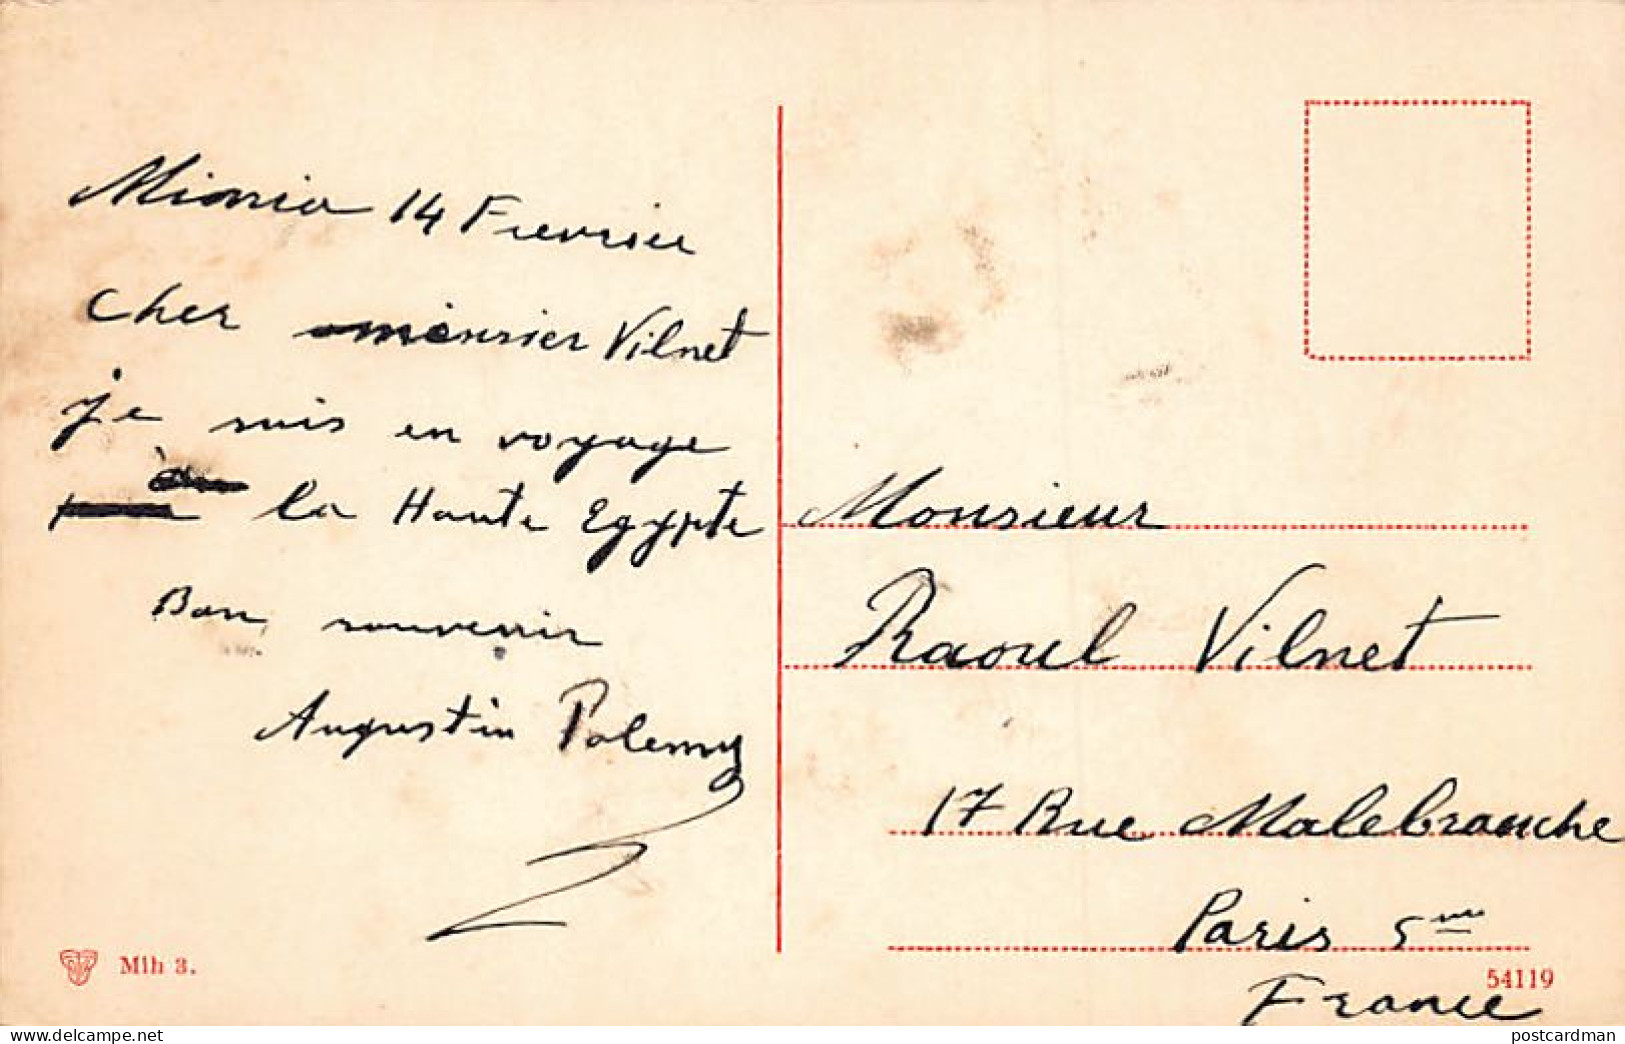 Minia 14 Fevrier
Cher monsier Vilnet
Je suis en voyage
la Haute Egypte
Bon souvenir
Augustin Polemy
Mlh 3.
Monsieur
Raoul Vilnet
17 Rue Malebranche
Paris 5me
France
54119
postcardman